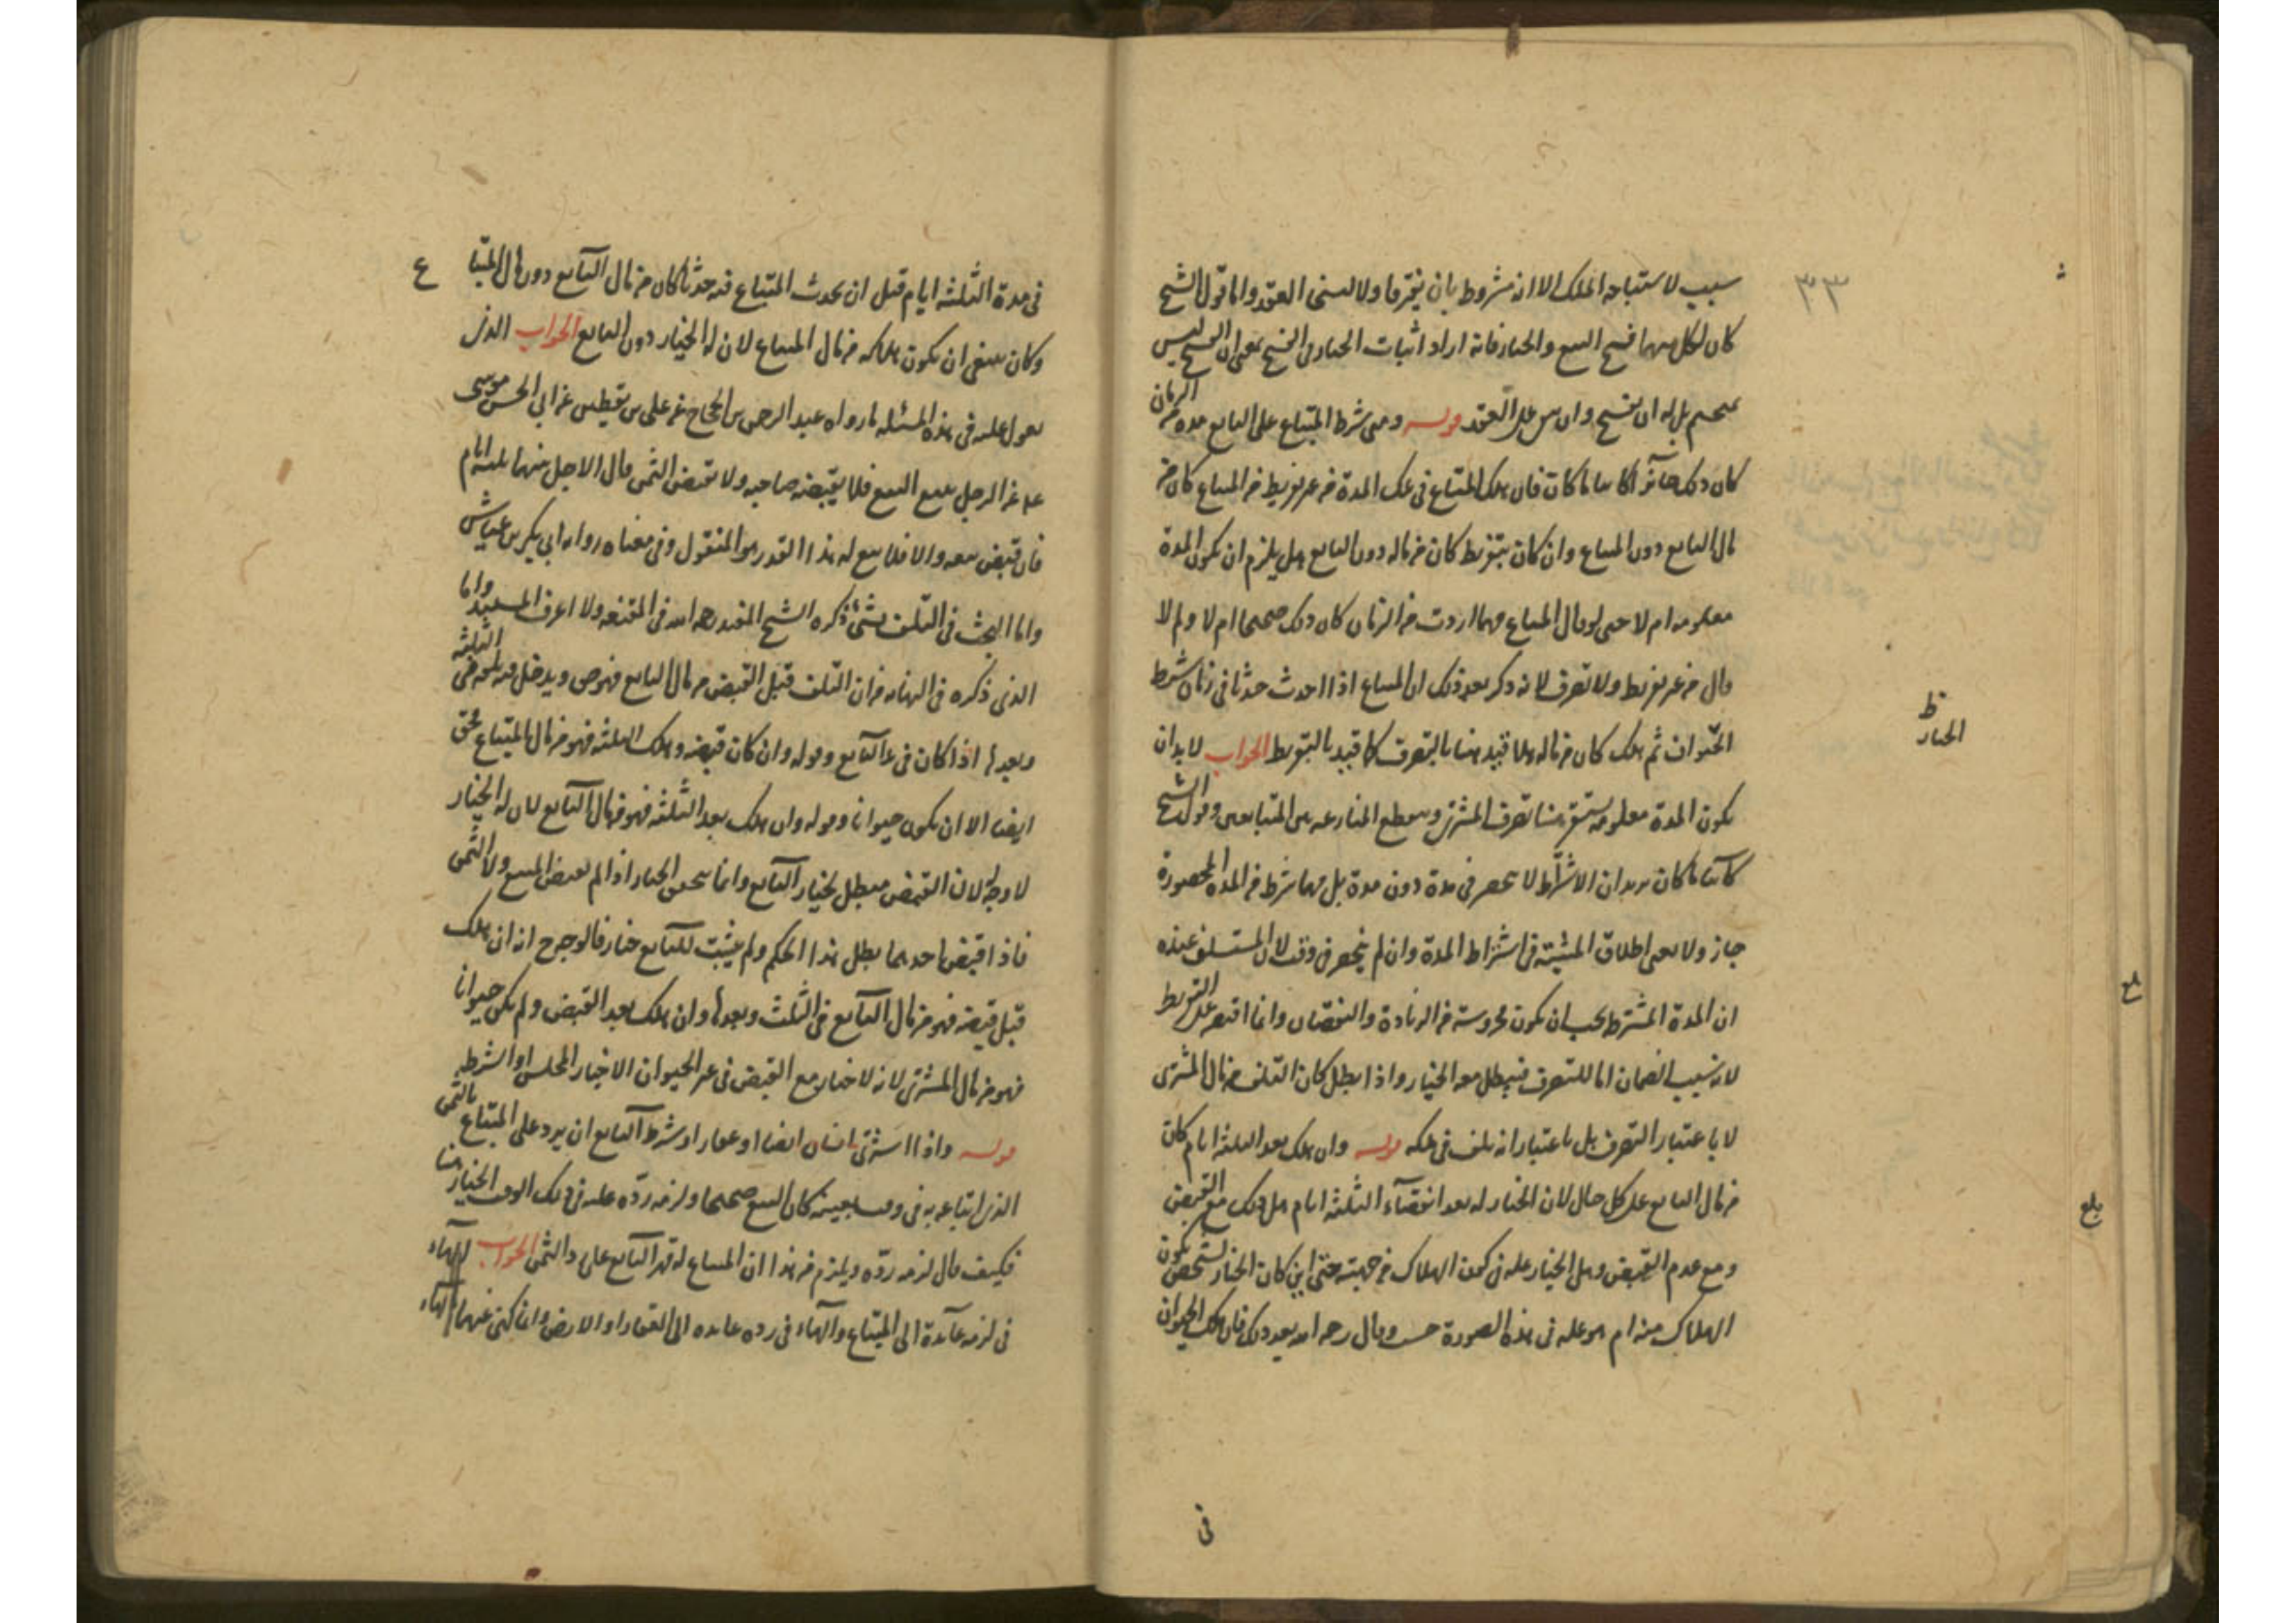 سبب لاستباحة الملك الا انه مشروط بان يفترقا ولا لسنى العقد واما قول الشيخ
كان لكل منهما فسخ البيع والخيار فانه اراد اثبات الخيار فى الفسخ بمعنى ان الفسخ ليس
بمحتم بل له ان يفسخ وان على العقد قوله ومتى شرط المبتاع على البايع مدة من الزمان
كان ذلك جائزا كائنا ما كانت فان هلك المتاع فى تلك المدة من غير تفريط من المبتاع كان من
مال البايع دون المبتاع وان كان بتفريط كان من ماله دون البايع هل يلزم ان يكون المدة
معلومة ام لا حتى لو قال المبتاع مهما اردت من الزمان كان ذلك صحيحا ام لا ولم لا
قال من غير تفريط ولا تصرف لانه ذكر بعد ذلك ان المبتاع اذا احدث حدثا فى زمان شرط
الحيوان ثم هلك كان من ماله هلا قيد هنا بالتصرف كما قيد بالتفريط الجواب لا بد ان
يكون المدة معلومة يستقر منها تصرف المشترى وينقطع المنازعة بين المتبايعين وقول الشيخ
كائنا ما كان يريد ان الاشتراط لا ينحصر فى مدة دون مدة بل مهما شرط من المدة المحصورة
جاز ولا يعنى اطلاق المشيئة فى اشتراط المدة وان لم ينحصر فى وقت لان المستسلف عنده
ان المدة المشترطة يجب ان تكون محروسة من الزيادة والنقصان وانما اقتصر على التفريط
لانه سبب الضمان اما للتصرف فيبطل معه الخيار واذا بطل كان التلف من مال المشترى
لا باعتبار التصرف بل باعتبار انه تلف فى ملكه قوله وان هلك بعد الثلثة ايام كان
من مال البايع على كل حال لان الخيار له بعد انقضاء الثلثة ايام هل ذلك مع القبض
ومع عدم القبض وهل الخيار علة فى كون الهلاك من جهته حتى اين كان الخيار لشخص يكون
الهلاك منه ام هو علة فى هذه الصورة حسب وقال رحمه الله بعد ذلك فان هلك الحيوان
٣٣
ظ
الخيار
بلغ
بلغ
فى
فى مدة الثلثة ايام قبل ان يحدث المبتاع فيه حدثا كان من مال البايع دون مال المبتاع
وكان ينبغى ان يكون هلاكه من مال المبتاع لان له الخيار دون البايع الجواب الذى
يعول عليه فى هذه المسئلة ما رواه عبد الرحمن بن الحجاج عن على بن يقطين عن ابى الحسن موسى
عن الرجل يبيع البيع فلا يقبضه صاحبه ولا يقبض الثمن قال الاجل بينهما ثلثة ايام
فان قبض بيعه والا فلا بيع له هذا القدر هو المنقول وفى معناه رواه ابى بكر بن عياش
واما البحث فى التلف بشئ ذكره الشيخ المفيد رحمه الله فى المقنعة ولا اعرف المستند واما
الذى ذكره فى النهاية من ان التلف قبل القبض من مال البايع فهو حق ويدخل فيه ما هو فى الثلثة
وبعدها اذا كان فى يد البايع وقوله وان كان قبضه وهلك الثلثة فهو من مال المبتاع حق
ايضا الا ان يكون حيوانا وقوله وان هلك بعد الثلثة فهو من مال البايع لان له الخيار
لا وجه له لان القبض مبطل لخيار البايع وانما يتحقق الخيار اذا لم يقبض المبيع ولا الثمن
فاذا قبض احدهما بطل هذا الحكم ولم يثبت للبايع خيار فالوجه ح انه ان هلك
قبل قبضه فهو من مال البايع فى الثلث وبعدها وان هلك بعد القبض ولم يكن حيوانا
فهو من مال المشترى لانه لا خيار مع القبض فى غير الحيوان الا خيار المجلس او الشرط
قوله واذا اشترى انسان ايضا او عقارا وشرط البايع ان يرد على المبتاع بالثمن
الذى ابتاعه به فى وقت بعينه كان البيع صحيحا ولزمه رده عليه فى ذلك الوقت الخيار هنا
فكيف قال لزمه رده ويلزم من هذا ان المبتاع له قهر البايع على رد الثمن الجواب الهاء
فى لزمه عائدة الى المبتاع والهاء فى رده عائدة الى العقار او الارض وانما كنى عنهما بالهاء